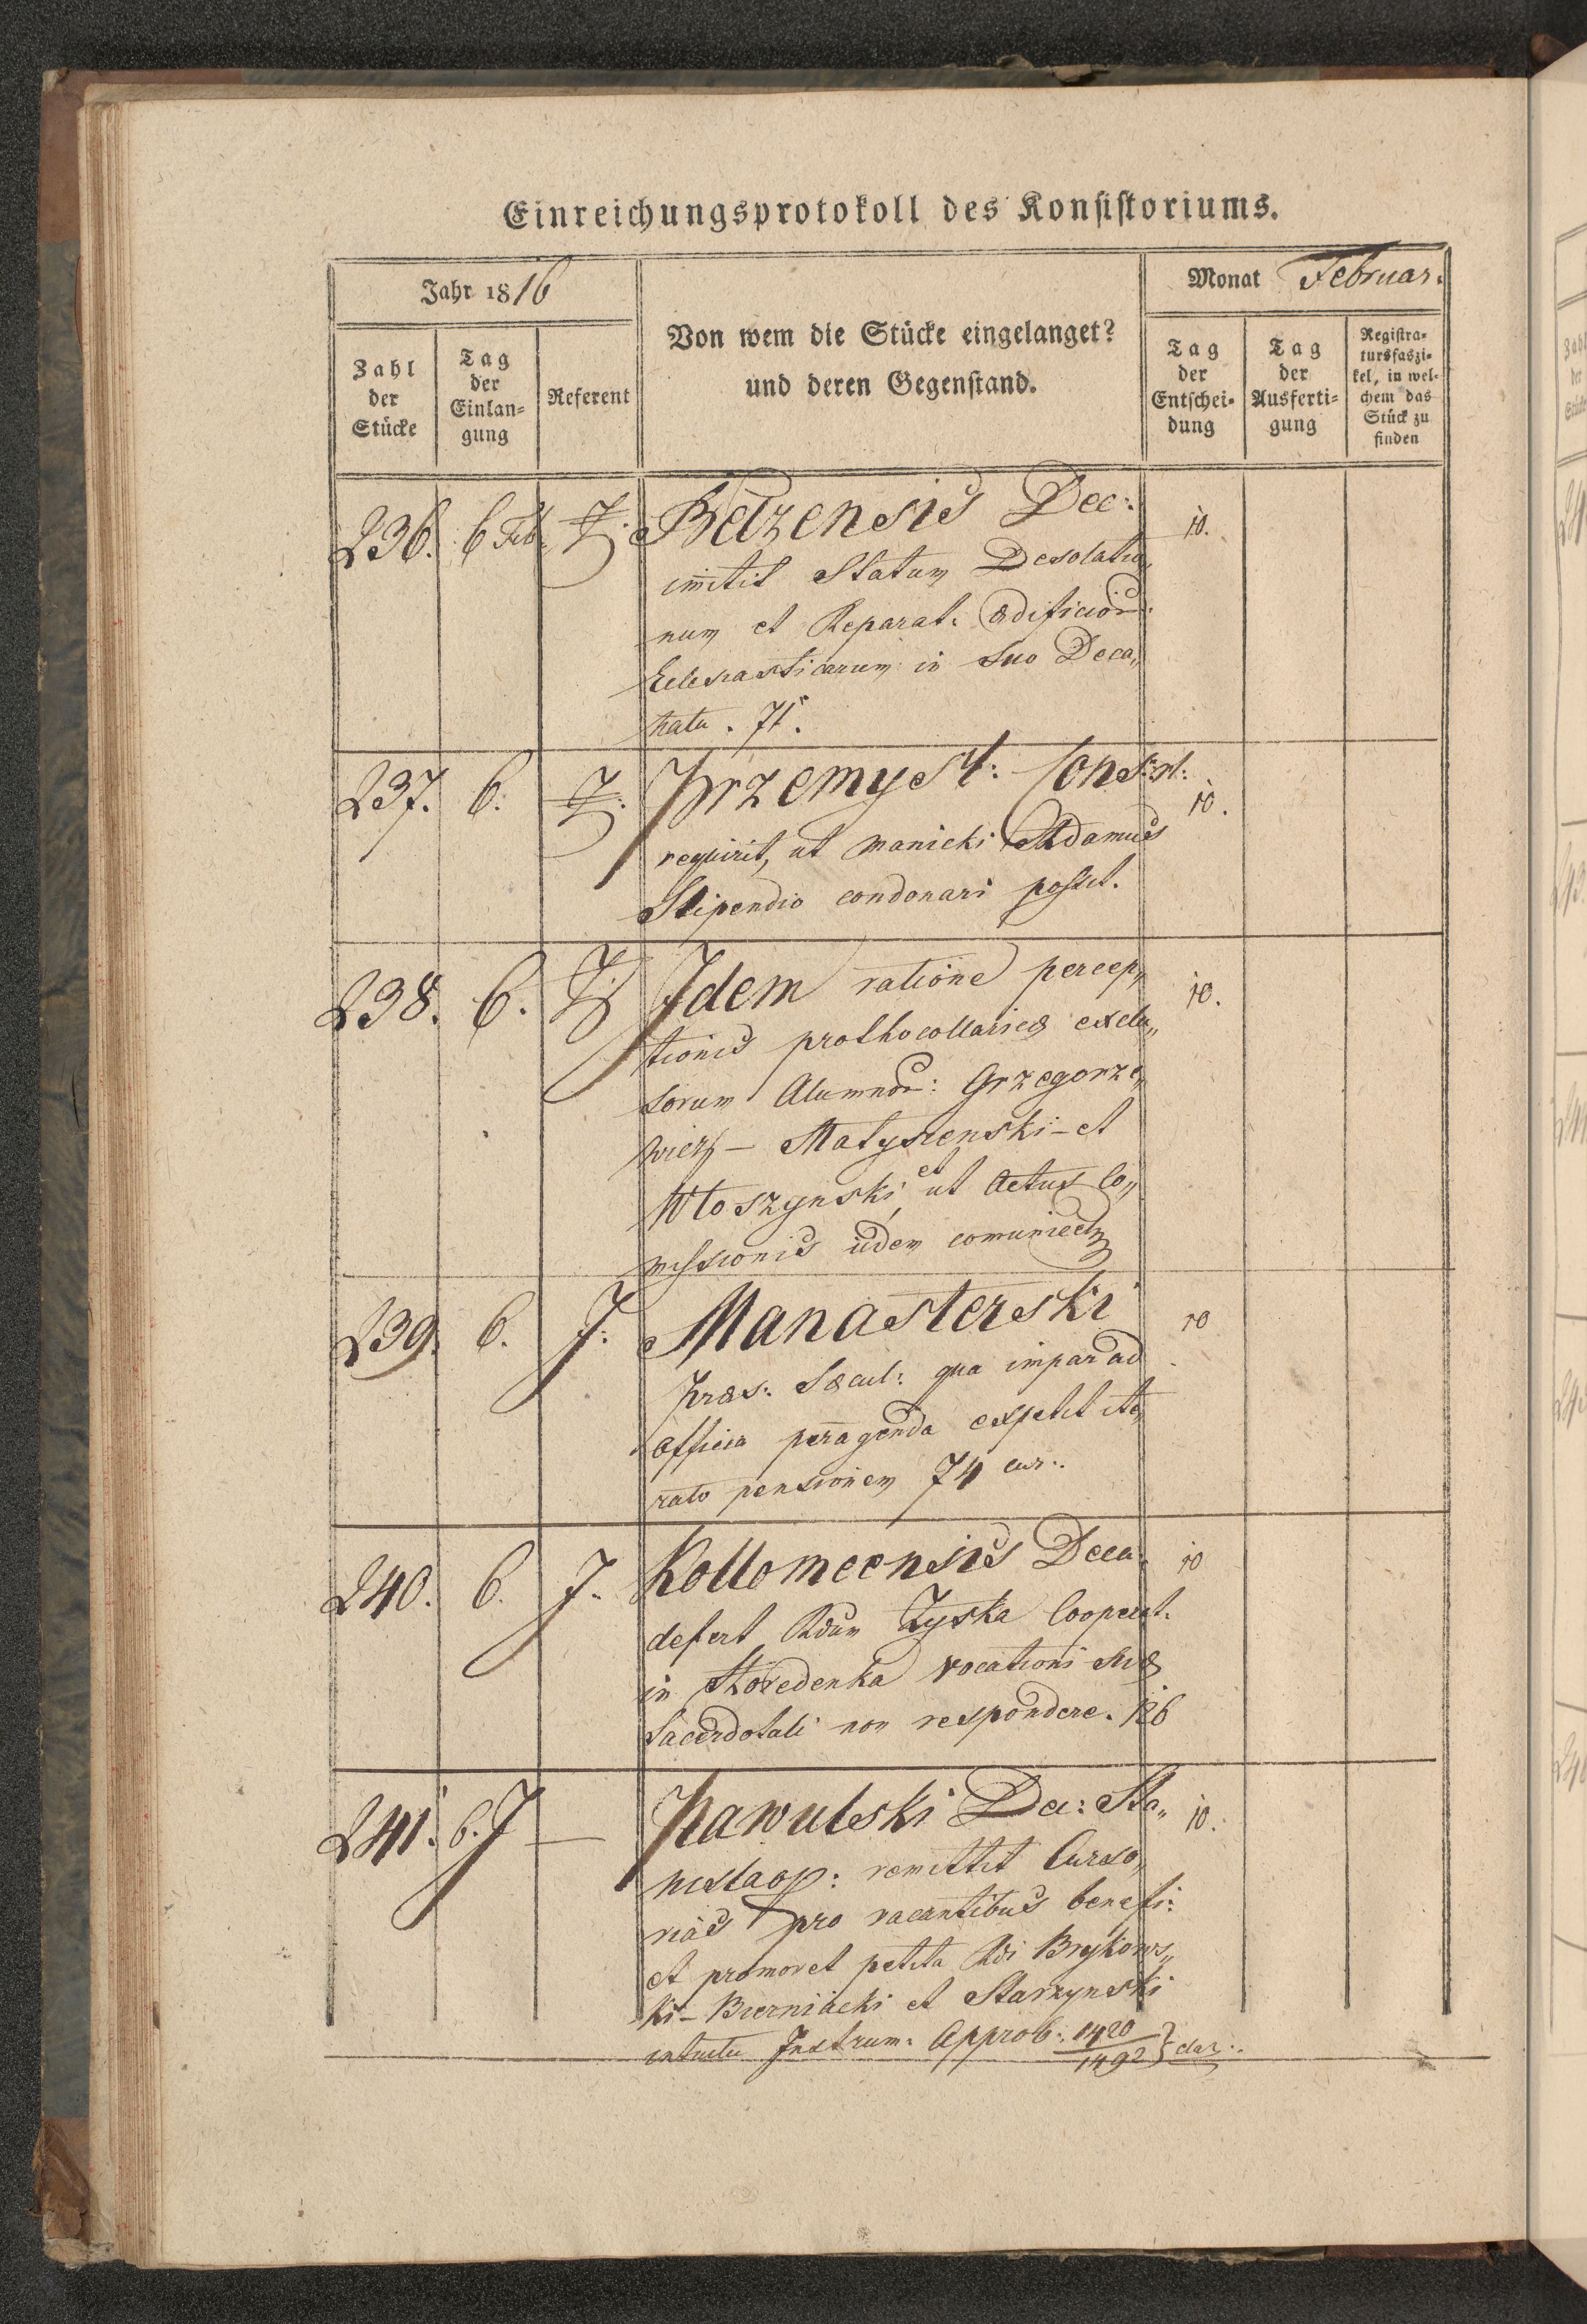 Einreichungsprotokoll des Konsistoriums.
Jahr 1816
Von wem die Stücke eingelanget?
und deren Gegenstand.
Monat Februar.
Zahl
der
Stücke
Tag
der
Einlan=
gung
Referent
Tag
der
Entschei=
dung
Tag
der
Ausferti=
gung
Registra=
tursfaszi=
kel, in wel=
chem das
Stück zu
finden
236. 6 Feb. Belzensis Dec: 10.
imitit Statum Desolatio„
num et Reparat. Ædificior:
Eclesiasticarum in suo Deca„
natu. 71.
237. 6. Przemysl: Consist: 10.
requirit, ut Manicki Adamus
Stipendio condonari posset.
238. 6. Idem ratione percep„ 10.
tionis prothocollariæ exclu„
sorum Alumnor: Grzegorze„
wicz – Matyszenski – et
Wloszynski, et ut Actus Co„
missionis iidem comunicetr
239. 6. J. Manasterski 10
Præs: Sæcul: qua impar ad
officia peragenda expetit ite„
rato pensionem 74 cur..
240. 6. J. Kollomeensis Deca. 10
defert Rdum Zyska Cooperat.
in Horodenka vocationi suæ
Sacerdotali non respondere. 126
241. 6. J — Kawulski Dec: Sta„ 10.
nislaop: remittit Curso„
rias pro vacantibus benefi:
et promovet petita Rdi Brykows„
ki – Bierniacki et Starzynski
intuitu Instrum: Approb: 1420
1492 } cur..